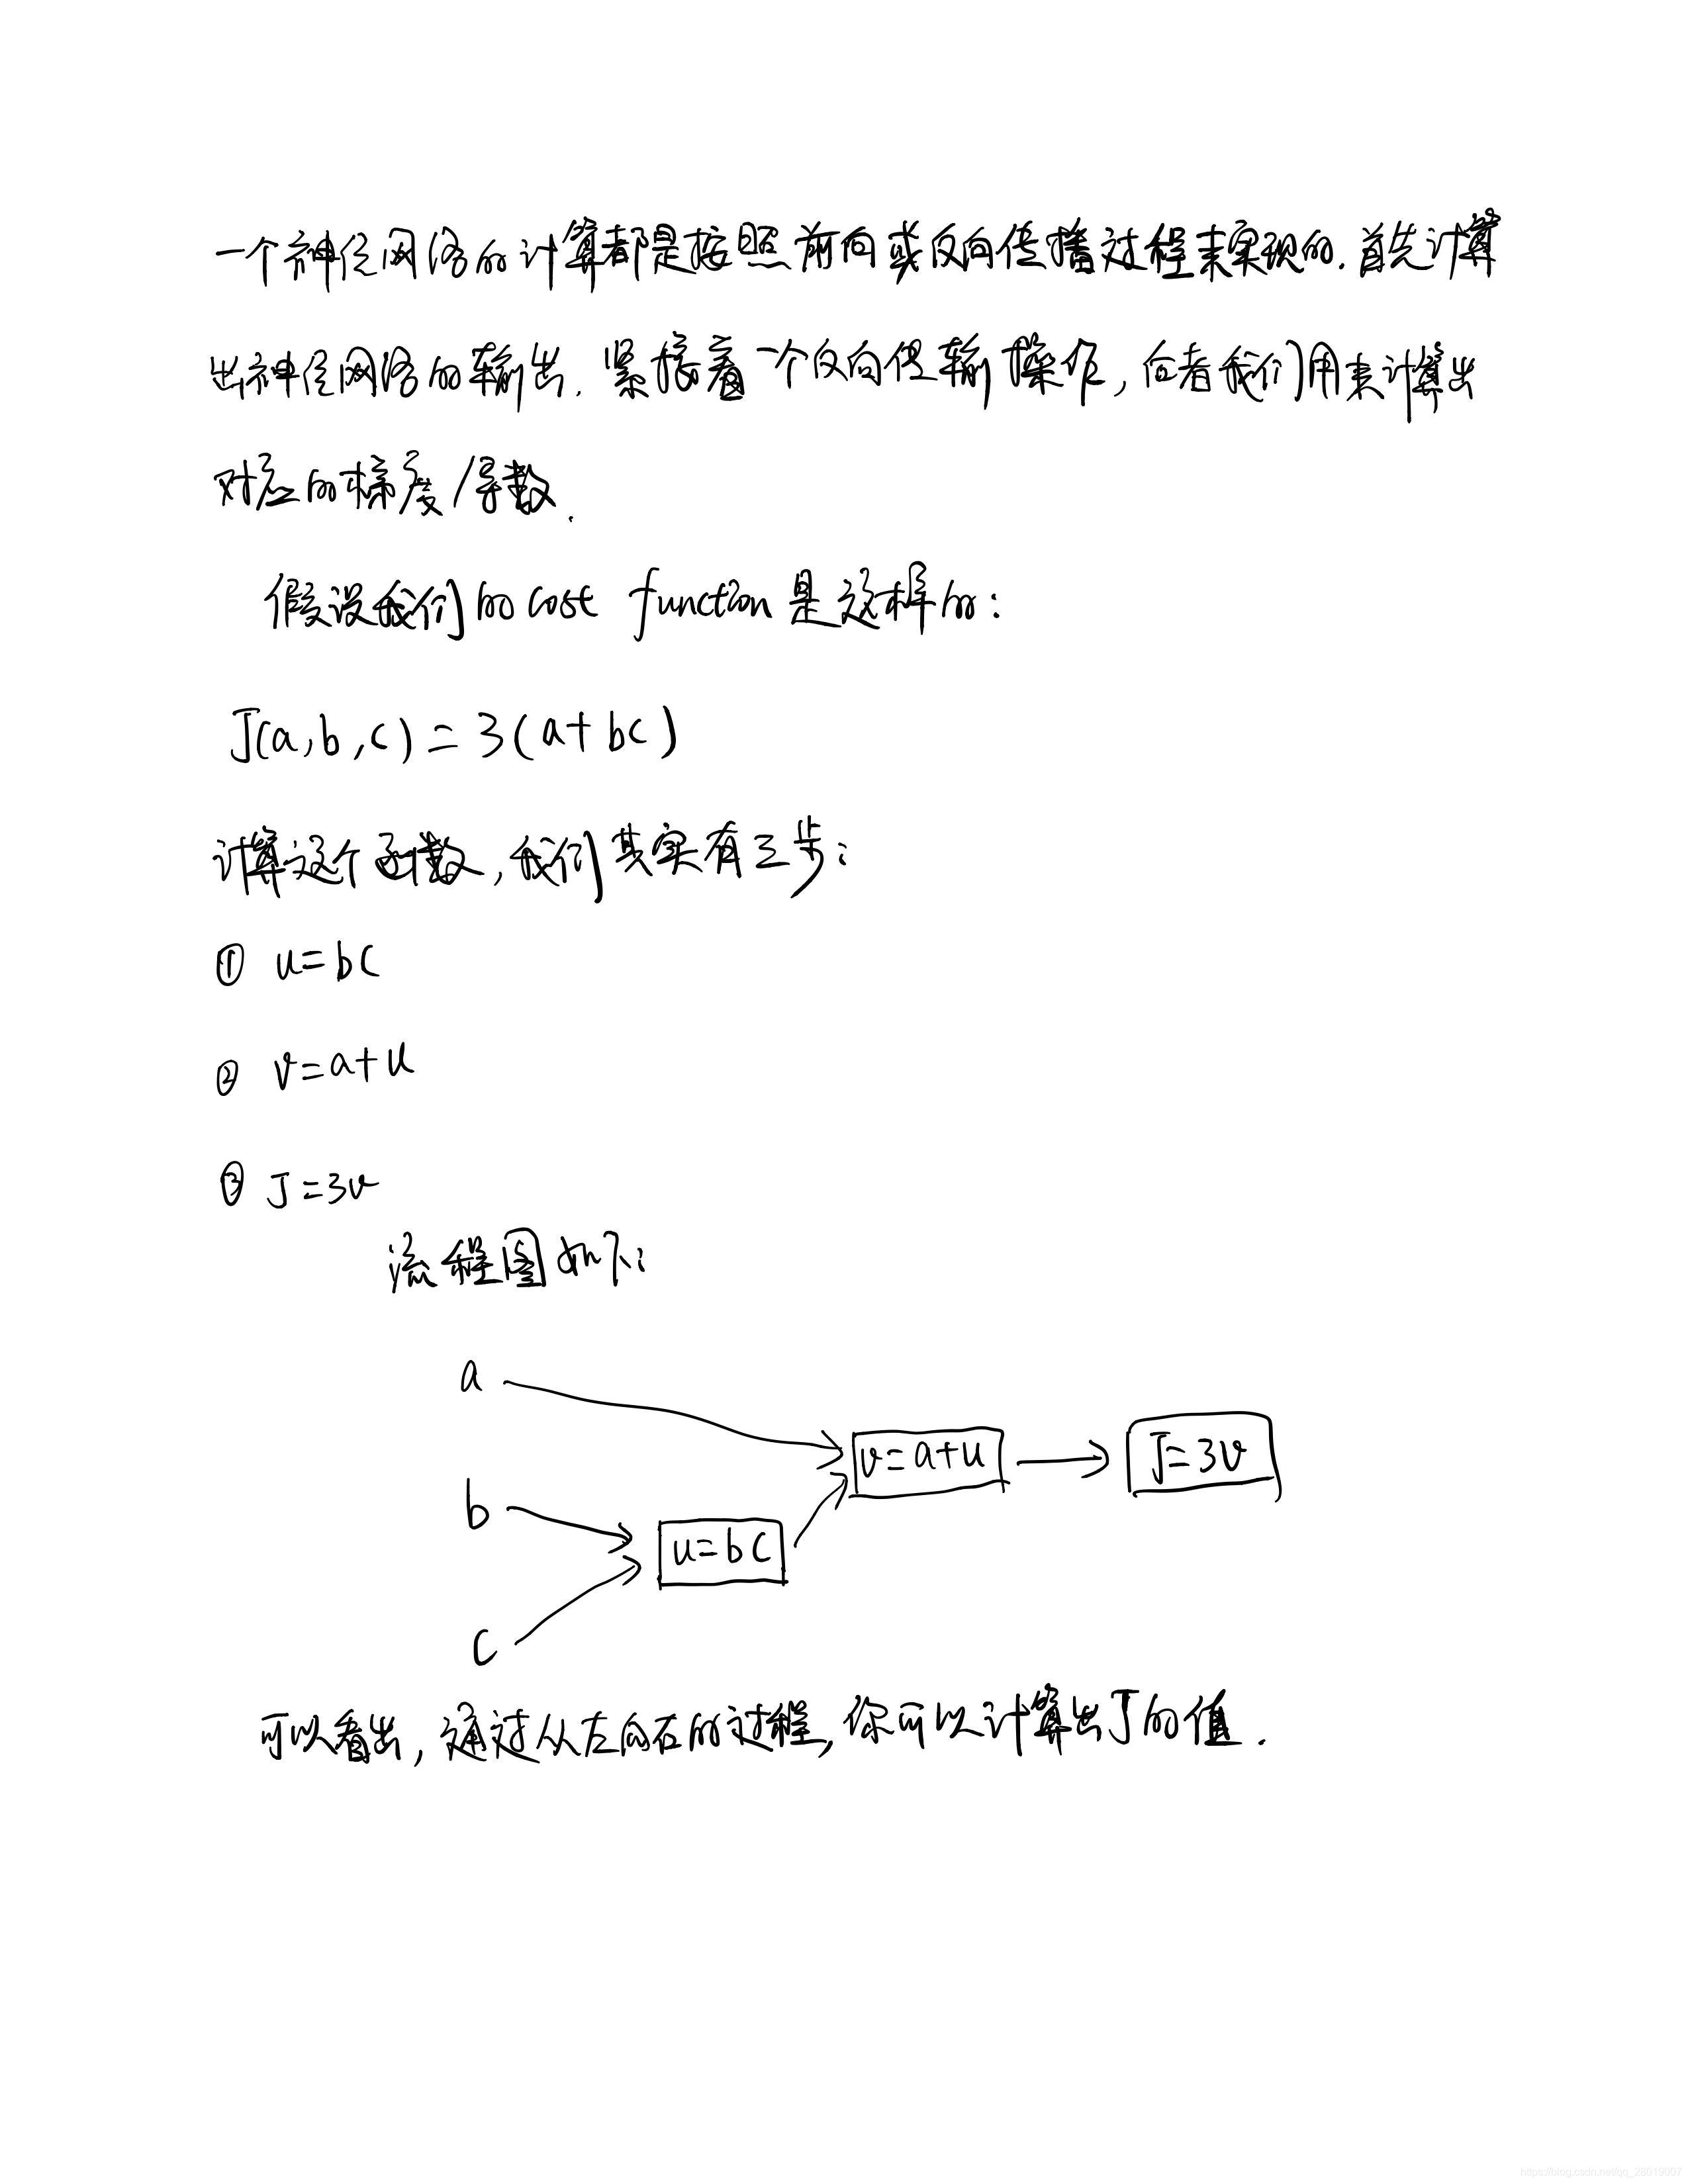 一个神经网络的计算都是按照前向或反向传播过程来实现的.首先计算
出神经网络的输出.紧接着一个反向传输操作,后者我们用来计算出
对应的梯度/导数.
假设我们的cost function是这样的:
J(a,b,c)=3(a+bc)
计算这个函数,我们其实有三步:
① u=bc
② v=a+u
③ J=3v
流程图如下:
a
v=a+u
J=3v
b
u=bc
c
可以看出,通过从左向右的过程,你可以计算出J的值.
https://blog.csdn.net/qq_26019007